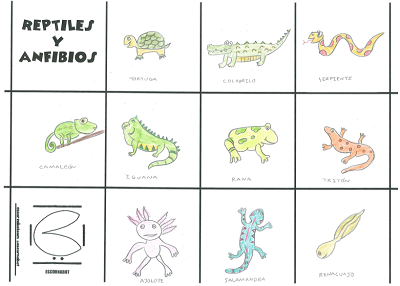 REPTILES
Y
ANFIBIOS
TORTUGA
COCODRILO
SERPIENTE
CAMALEÓN
IGUANA
RANA
TRITÓN
AJOLOTE
SALAMANDRA
RENACUAJO